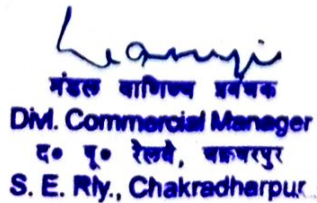 मंडल वाणिज्य प्रबंधक
Divl. Commercial Manager
द० पू० रेलवे, चक्रधरपुर
S. E. Rly., Chakradharpur